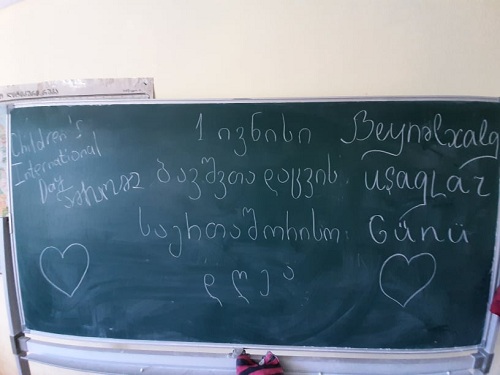 Children's
International
Day
1 ივნისი
ბავშვთა დაცვის
საერთაშორისო
დღეა
Beynəlxalq
uşaqlar
Günü